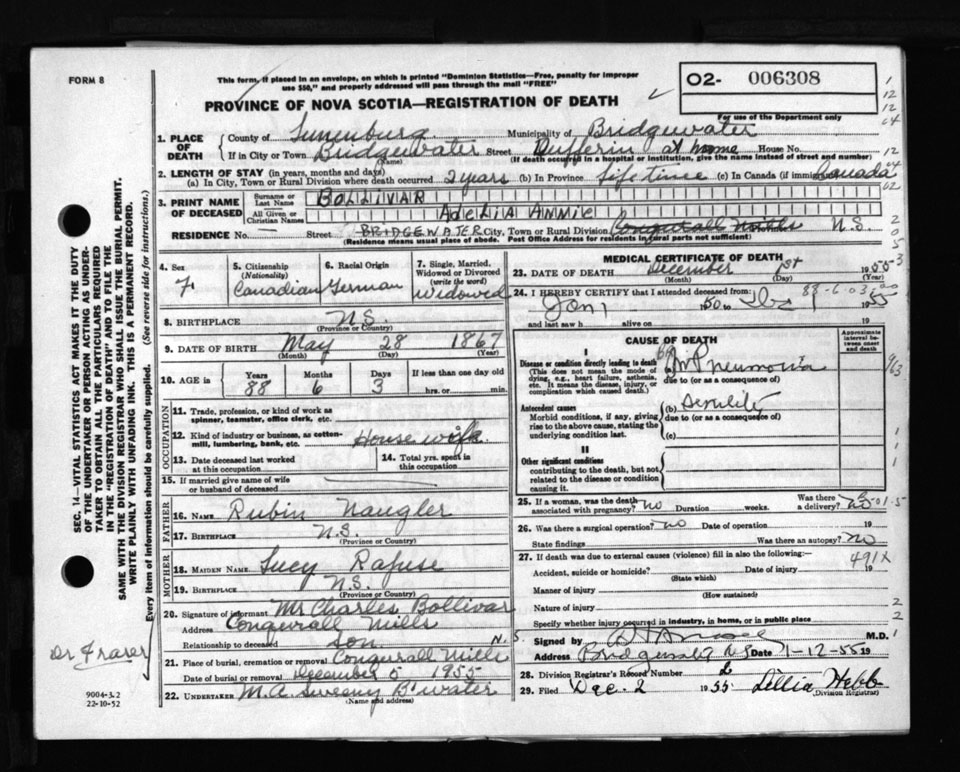 FORM 8
This form, if placed in an envelope, on which is printed "Dominion Statistics—Free, penalty for improper
use $50," and properly addressed will pass through the mail "FREE"
PROVINCE OF NOVA SCOTIA—REGISTRATION OF DEATH
02- 006308
For use of the Department only
1. PLACE OF DEATH
County of Lunenburg Municipality of Bridgewater
If in City or Town Bridgewater Street Dufferin at home House No.
(Name) (If death occurred in a hospital or institution, give the name instead of street and number)
2. LENGTH OF STAY (in years, months and days)
(a) In City, Town or Rural Division where death occurred 2 years (b) In Province Life time (c) In Canada (if immigrant) Canada
3. PRINT NAME OF DECEASED
Surname or Last Name BOLLIVAR
All Given or Christian Names AdeLIA ANNIE
RESIDENCE No. — Street BRIDGEWATER City, Town or Rural Division Conquerall Mills N.S.
(Residence means usual place of abode. Post Office Address for residents in rural parts not sufficient)
4. Sex
F
5. Citizenship
(Nationality)
Canadian
6. Racial Origin
German
7. Single, Married, Widowed or Divorced
(write the word)
Widowed
8. BIRTHPLACE N.S.
(Province or Country)
9. DATE OF BIRTH May 28 1867
(Month) (Day) (Year)
10. AGE in
Years Months Days If less than one day old
88 6 3 hrs. or min.
OCCUPATION
11. Trade, profession, or kind of work as spinner, teamster, office clerk, etc.
12. Kind of industry or business, as cotton-mill, lumbering, bank, etc. Housewife
13. Date deceased last worked at this occupation
14. Total yrs. spent in this occupation
15. If married give name of wife or husband of deceased
FATHER
16. NAME Rubin Naugler
17. BIRTHPLACE N.S.
(Province or Country)
MOTHER
18. MAIDEN NAME Lucy Rafuse
19. BIRTHPLACE N.S.
(Province or Country)
20. Signature of informant Mr Charles Bollivar
Address Conqurall Mills
Relationship to deceased son N.S.
21. Place of burial, cremation or removal Conqurall Mills
Date of burial or removal December 5 1955
22. UNDERTAKER M.A. Sweeny B'water
(Name and address)
MEDICAL CERTIFICATE OF DEATH
23. DATE OF DEATH December 1st 1955
(Month) (Day)
24. I HEREBY CERTIFY that I attended deceased from:
Jan 1 50 to Dec 1 1955
88-6-03
and last saw h alive on 19
CAUSE OF DEATH
Approximate interval between onset and death
I
Disease or condition directly leading to death
(This does not mean the mode of dying, e.g., heart failure, asthenia, etc. It means the disease, injury, or complication which caused death.)
Pneumonia
due to (or as a consequence of)
Antecedent causes
Morbid conditions, if any, giving rise to the above cause, stating the underlying condition last.
(b) Senility
due to (or as a consequence of)
(c)
II
Other significant conditions
contributing to the death, but not related to the disease or condition causing it.
25. If a woman, was the death associated with pregnancy? no Duration weeks. Was there a delivery? no
26. Was there a surgical operation? no Date of operation 19
State findings Was there an autopsy? no
27. If death was due to external causes (violence) fill in also the following:—
491X
Accident, suicide or homicide? Date of injury 19
(State which)
Manner of injury
(How sustained)
Nature of injury
Specify whether injury occurred in industry, in home, or in public place
Signed by M.D.
Address Bridgewater N.S. Date 1-12-55 19
28. Division Registrar's Record Number
29. Filed Dec. 2 1955 Lillia Hebb
(Division Registrar)
SEC. 14—VITAL STATISTICS ACT MAKES IT THE DUTY
OF THE UNDERTAKER OR PERSON ACTING AS UNDER-
TAKER TO OBTAIN ALL THE PARTICULARS REQUIRED
IN THE "REGISTRATION OF DEATH" AND TO FILE THE
SAME WITH THE DIVISION REGISTRAR WHO SHALL ISSUE THE BURIAL PERMIT.
WRITE PLAINLY WITH UNFADING INK. THIS IS A PERMANENT RECORD.
Every item of information should be carefully supplied. (See reverse side for instructions.)
Dr Frazer
9004-3.2
22-10-52